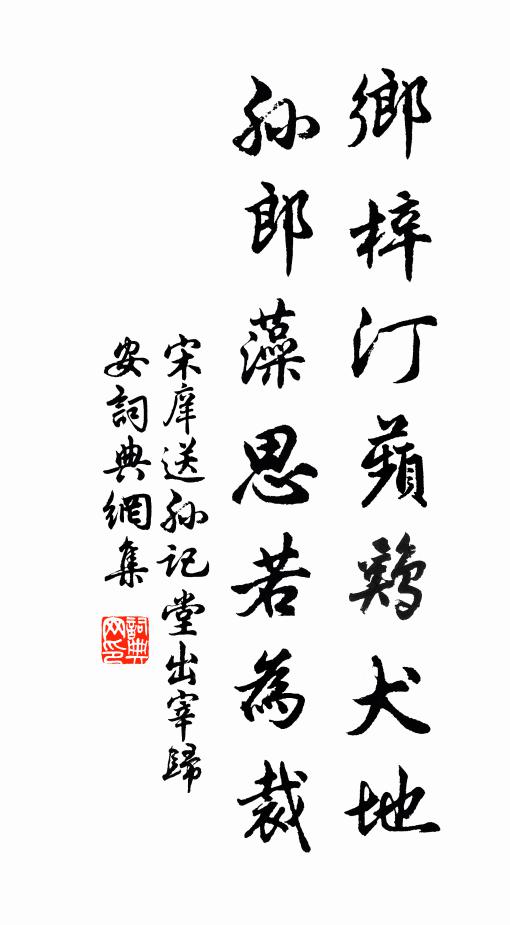 鄉梓汀蘋鷄犬地
孫郎藻思若為裁
宋庠送孫記堂出宰歸
安詞典網集
詞典网印